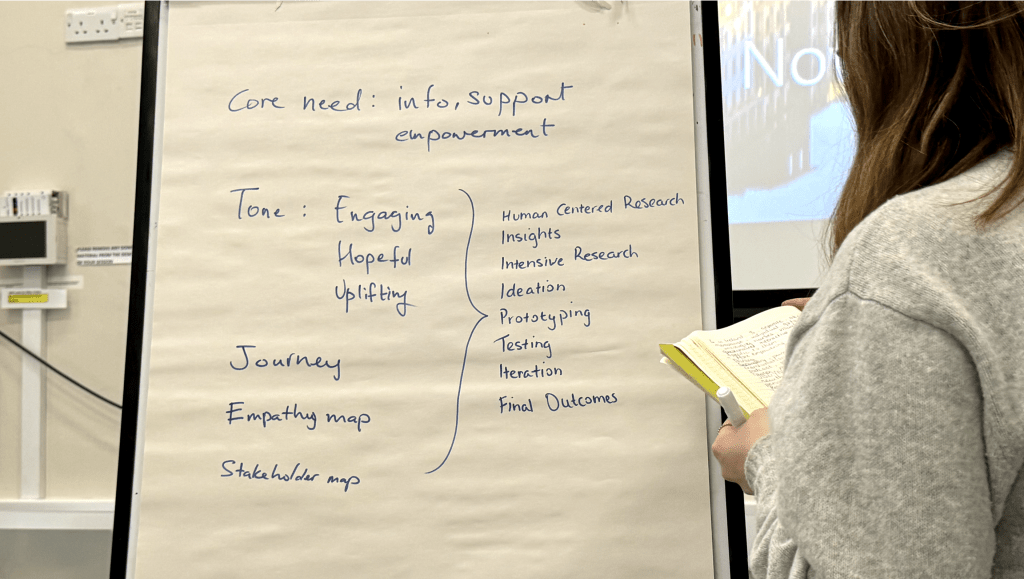 Core need: info, support
empowerment
Tone: Engaging
Hopeful
Uplifting
Journey
Empathy map
Stakeholder map
Human Centered Research
Insights
Intensive Research
Ideation
Prototyping
Testing
Iteration
Final Outcomes